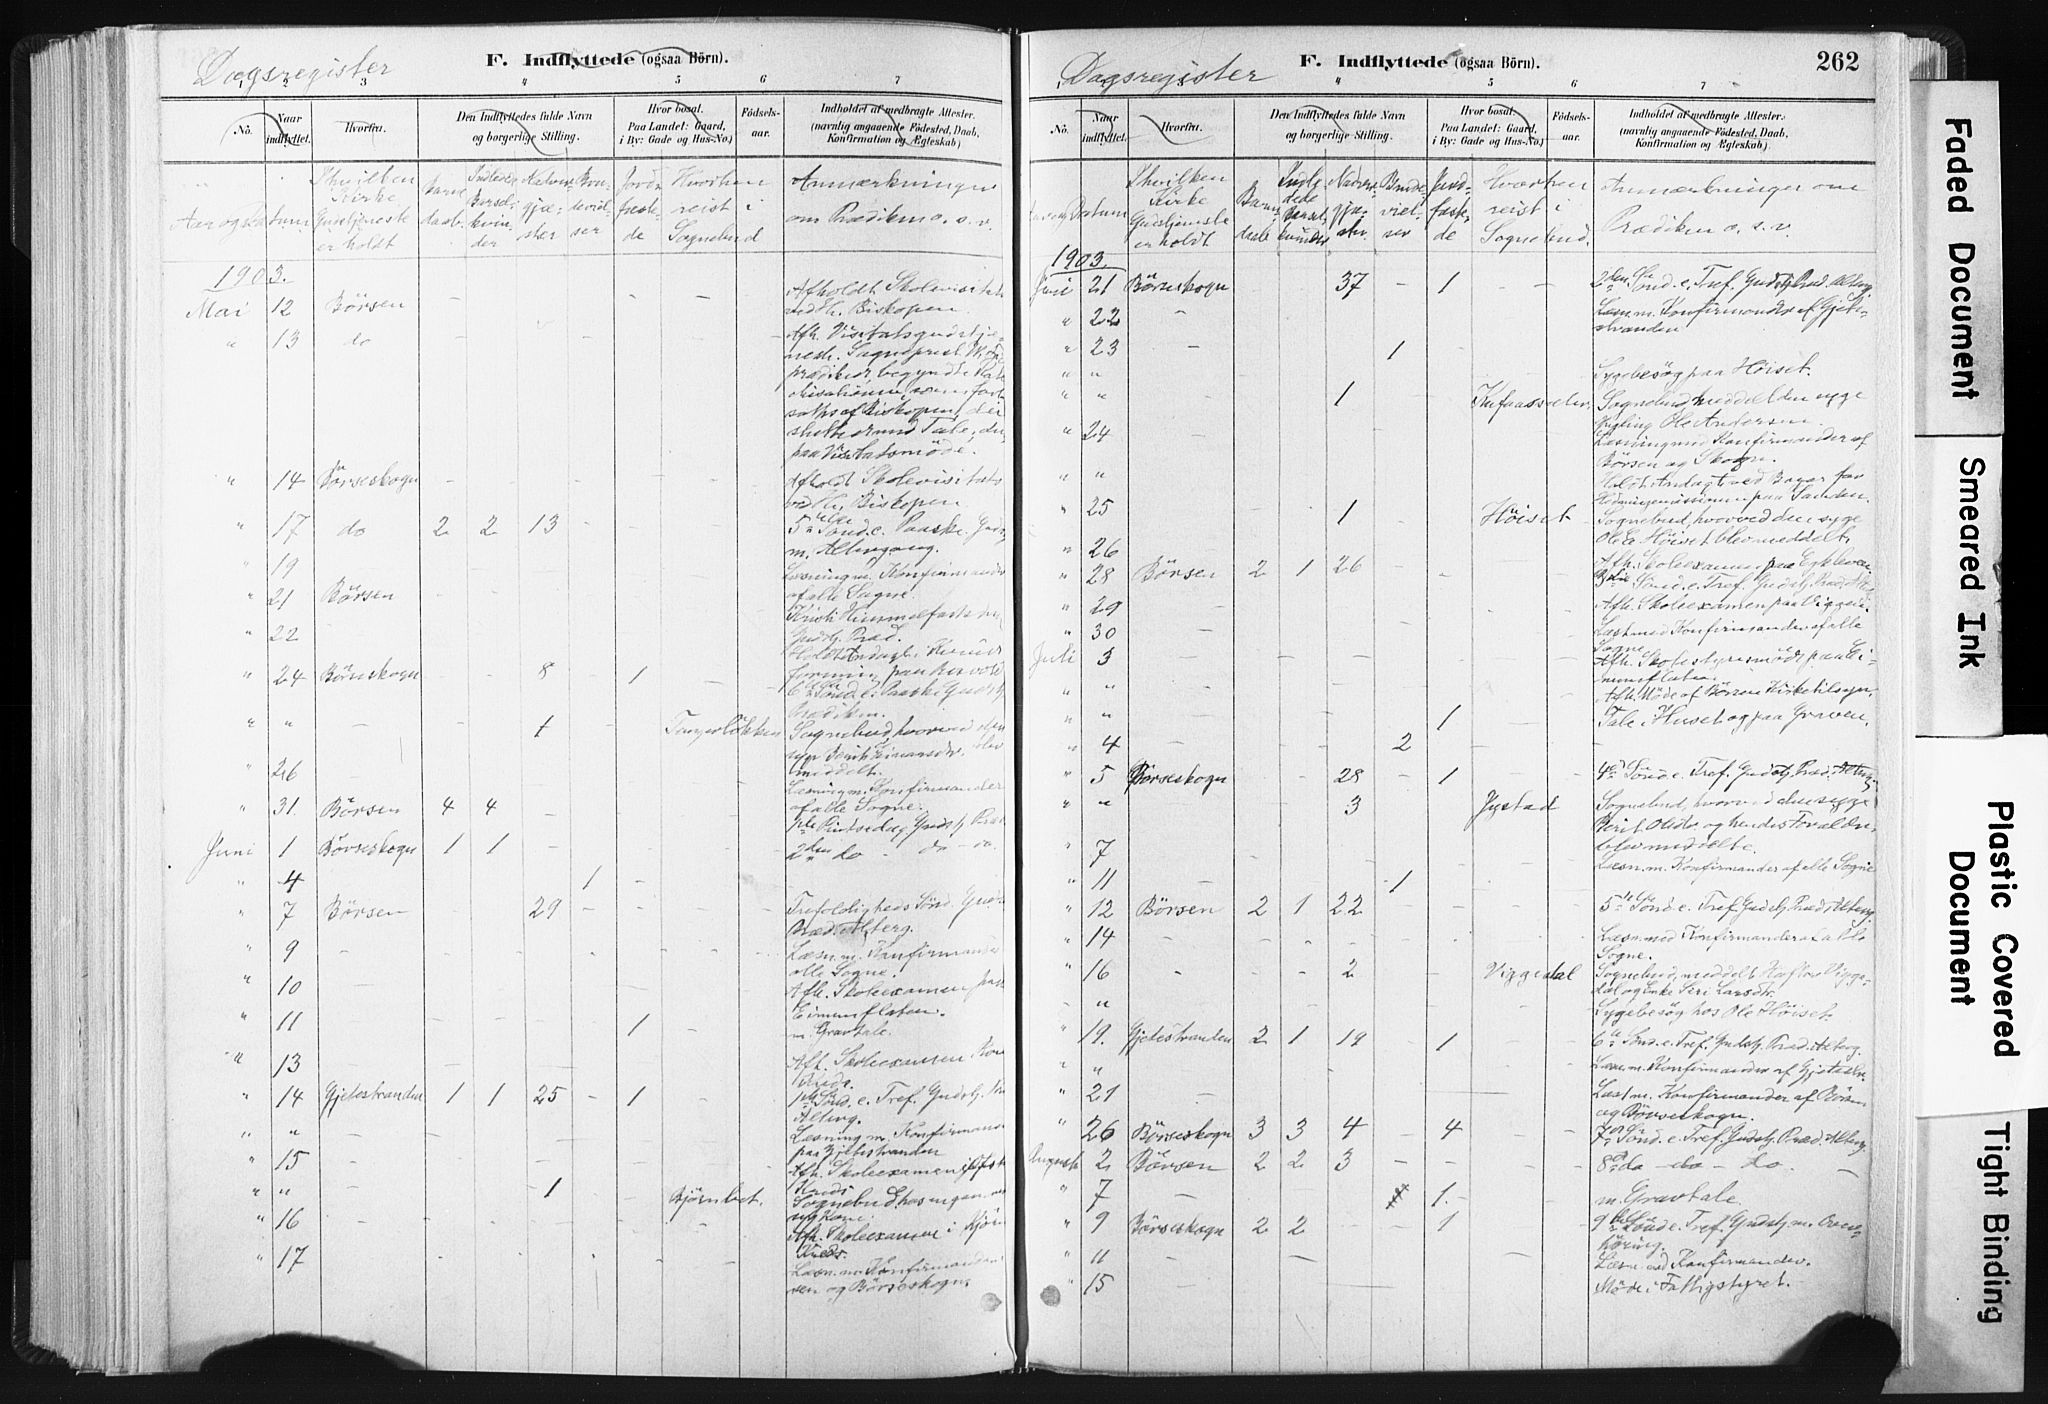 Dagsregister
F. Indflyttede (ogsaa Börn).
1 2 3 4 5 6 7
No.
Naar indflyttet.
Hvorfra.
Den Indflyttedes fulde Navn og borgerlige Stilling.
Hvor bosat. Paa Landet: Gaard, i By: Gade og Hus-No.)
Födsels-aar.
Indholdet af medbragte Attester. (navnlig angaaende Födested, Daab, Konfirmation og Ægteskab)
Aar og Datum
I hvilken Kirke Gudstjeneste er holdt
Barne daab
Indledede Barselkvinder
Nadvergjæster
Brudevielser
Jordfæstede
Hvorhen reist i Sognebud
Anmærkninger om Prædiken o. s. v.
1903.
Mai 12 Börsen Afholdt Skolevisitats
ved H. Biskopen.
" 13 do Afh. Visitatsgudstje-
prædiker, begyndte
af Biskopen, der
paa Visitatsmöde.
" 14 Börseskogn Afholdt Skolevisitats
ved H. Biskopen
" 17 do 2 2 13 5te Sönd. e. Paaske. Guds
m. Altergang.
" 19 Læsning m. Konfirmander
af alle Sogne.
" 21 Börsen Kristi Himmelfarts
Gudstj. Præd.
" 22 Holdt Andagt i
" 24 Börseskogn 8 1 6te Sönd. e. Paaske Gudstj.
Prædiken.
" " 1 Sognebud, hvorved den
meddelt.
" 26 Læsning m. Konfirmander
af alle Sogne.
" 31. Börsen 4 4 1ste Pintsedag Gudstj. Præ
Juni 1 Börseskogn 1 1 2den do do do
" 4 1
" 7 Börsen 29 Trefoldigheds Sönd. Guds
Præd. Alterg.
" 9 Læsn. m. Konfirmander
alle Sogne.
" 10 Afh. Skoleexamen paa
Eimensfladen.
" 11 1 m. Gravtale.
" 13 Afh. Skoleexamen
Kreds.
" 14 Gjetestranden 1 1 25 - 1 1ste Sönd. e. Tref. Gudstj.
Alterg.
" " Læsning m. Konfirmand
paa Gjetestranden
" 15 Afh. Skoleexamen
Kreds
" " 1 Sognebud hos
syg Kone.
" 16 Afh. Skoleexamen i
Kreds.
" 17 Læsn. m. Konfirmander
sen og Börseskogn.
Dagsregister
F. Indflyttede (ogsaa Börn).
262
1 2 3 4 5 6 7
No.
Naar indflyttet.
Hvorfra.
Den Indflyttedes fulde Navn og borgerlige Stilling.
Hvor bosat. Paa Landet: Gaard, i By: Gade og Hus-No.)
Födsels-aar.
Indholdet af medbragte Attester. (navnlig angaaende Födested, Daab, Konfirmation og Ægteskab)
Datum
I hvilken Kirke Gudstjeneste er holdt
Barne daab
Indledede Barselkvinder
Nadvergjæster
Brudevielser
Jordfæstede
Hvorhen reist i Sognebud.
Anmærkninger om Prædiken o. s. v.
1903.
Juni 21 Börseskogn 37 1 2den Sönd. e. Tref. Gudstj. Præd. Alterg.
" 22 Læsn. m. Konfirmander af Gjete-
stranden
" 23 1
" " Sygebesög paa Höiset.
" " 1 Sognebud, meddelt den syge
Yngling Ole Andersen.
" 24 Læsning med Konfirmander af
Börsen og Skogn.
" " Holdt Andagt ved Bazar for
Hedningemissionen paa Sanden.
" 25 1 Höiset Sognebud, hvorved den syge
Ole E. Höiset blev meddelt.
" 26 Afh. Skoleexamen paa
" 28 Börsen 2 1 26 3die Sönd. e. Tref. Gudstj. Præd. Alt
" 29 Afh. Skoleexamen paa Viggen.
" 30 Læst med Konfirmander af alle
Sogne
Juli 3 Afh. Skolestyresmöde paa Ei-
mensfladen.
" " Afh. Möde af Börsen Kirketilsyn.
" " 1 Tale i Huset og paa Graven.
" 4 2
" 5 Börseskogn 28 1 4de Sönd. e. Tref. Gudstj. Præd. Alterg.
" " 3 Jystad Sognebud, hvorved den syge
Berit Olsdr. og hendes Forældre
blev meddelte.
" 7 Læsn. m. Konfirmander af alle Sogne
" 11 1
" 12 Börsen 2 1 22 5te Sönd. e. Tref. Gudstj. Præd. Alterg.
" 14 Læsn. med Konfirmander af alle
Sogne.
" 16 2 Viggedal Sognebud, meddelt Vigge-
dal og Enke Siri Larsdtr.
" Sygebesög hos Ole Höiset.
" 19. Gjetestranden 2 1 19 1 6te Sönd. e. Tref. Gudstj. Præd. Alterg.
" Læsn. m. Konfirmander af Gjetestr.
" 21 Læst m. Konfirmander af Börsen
og Börseskogn.
" 26 Börseskogn 3 3 4 - 4 7de Sönd. e. Tref. Gudstj. Præd. Alterg.
August 2 Börsen 2 2 3 8de do - do - do.
" 7 1. m. Gravtale
" 9 Börseskogn 2 2 1 9de Sönd e. Tref. Gudstj. m. Over-
höring.
" 11 Læsn. med Konfirmander.
" 15 Möde i Fattigstyret.
Faded Document
Smeared Ink
Plastic Covered Document
Tight Binding